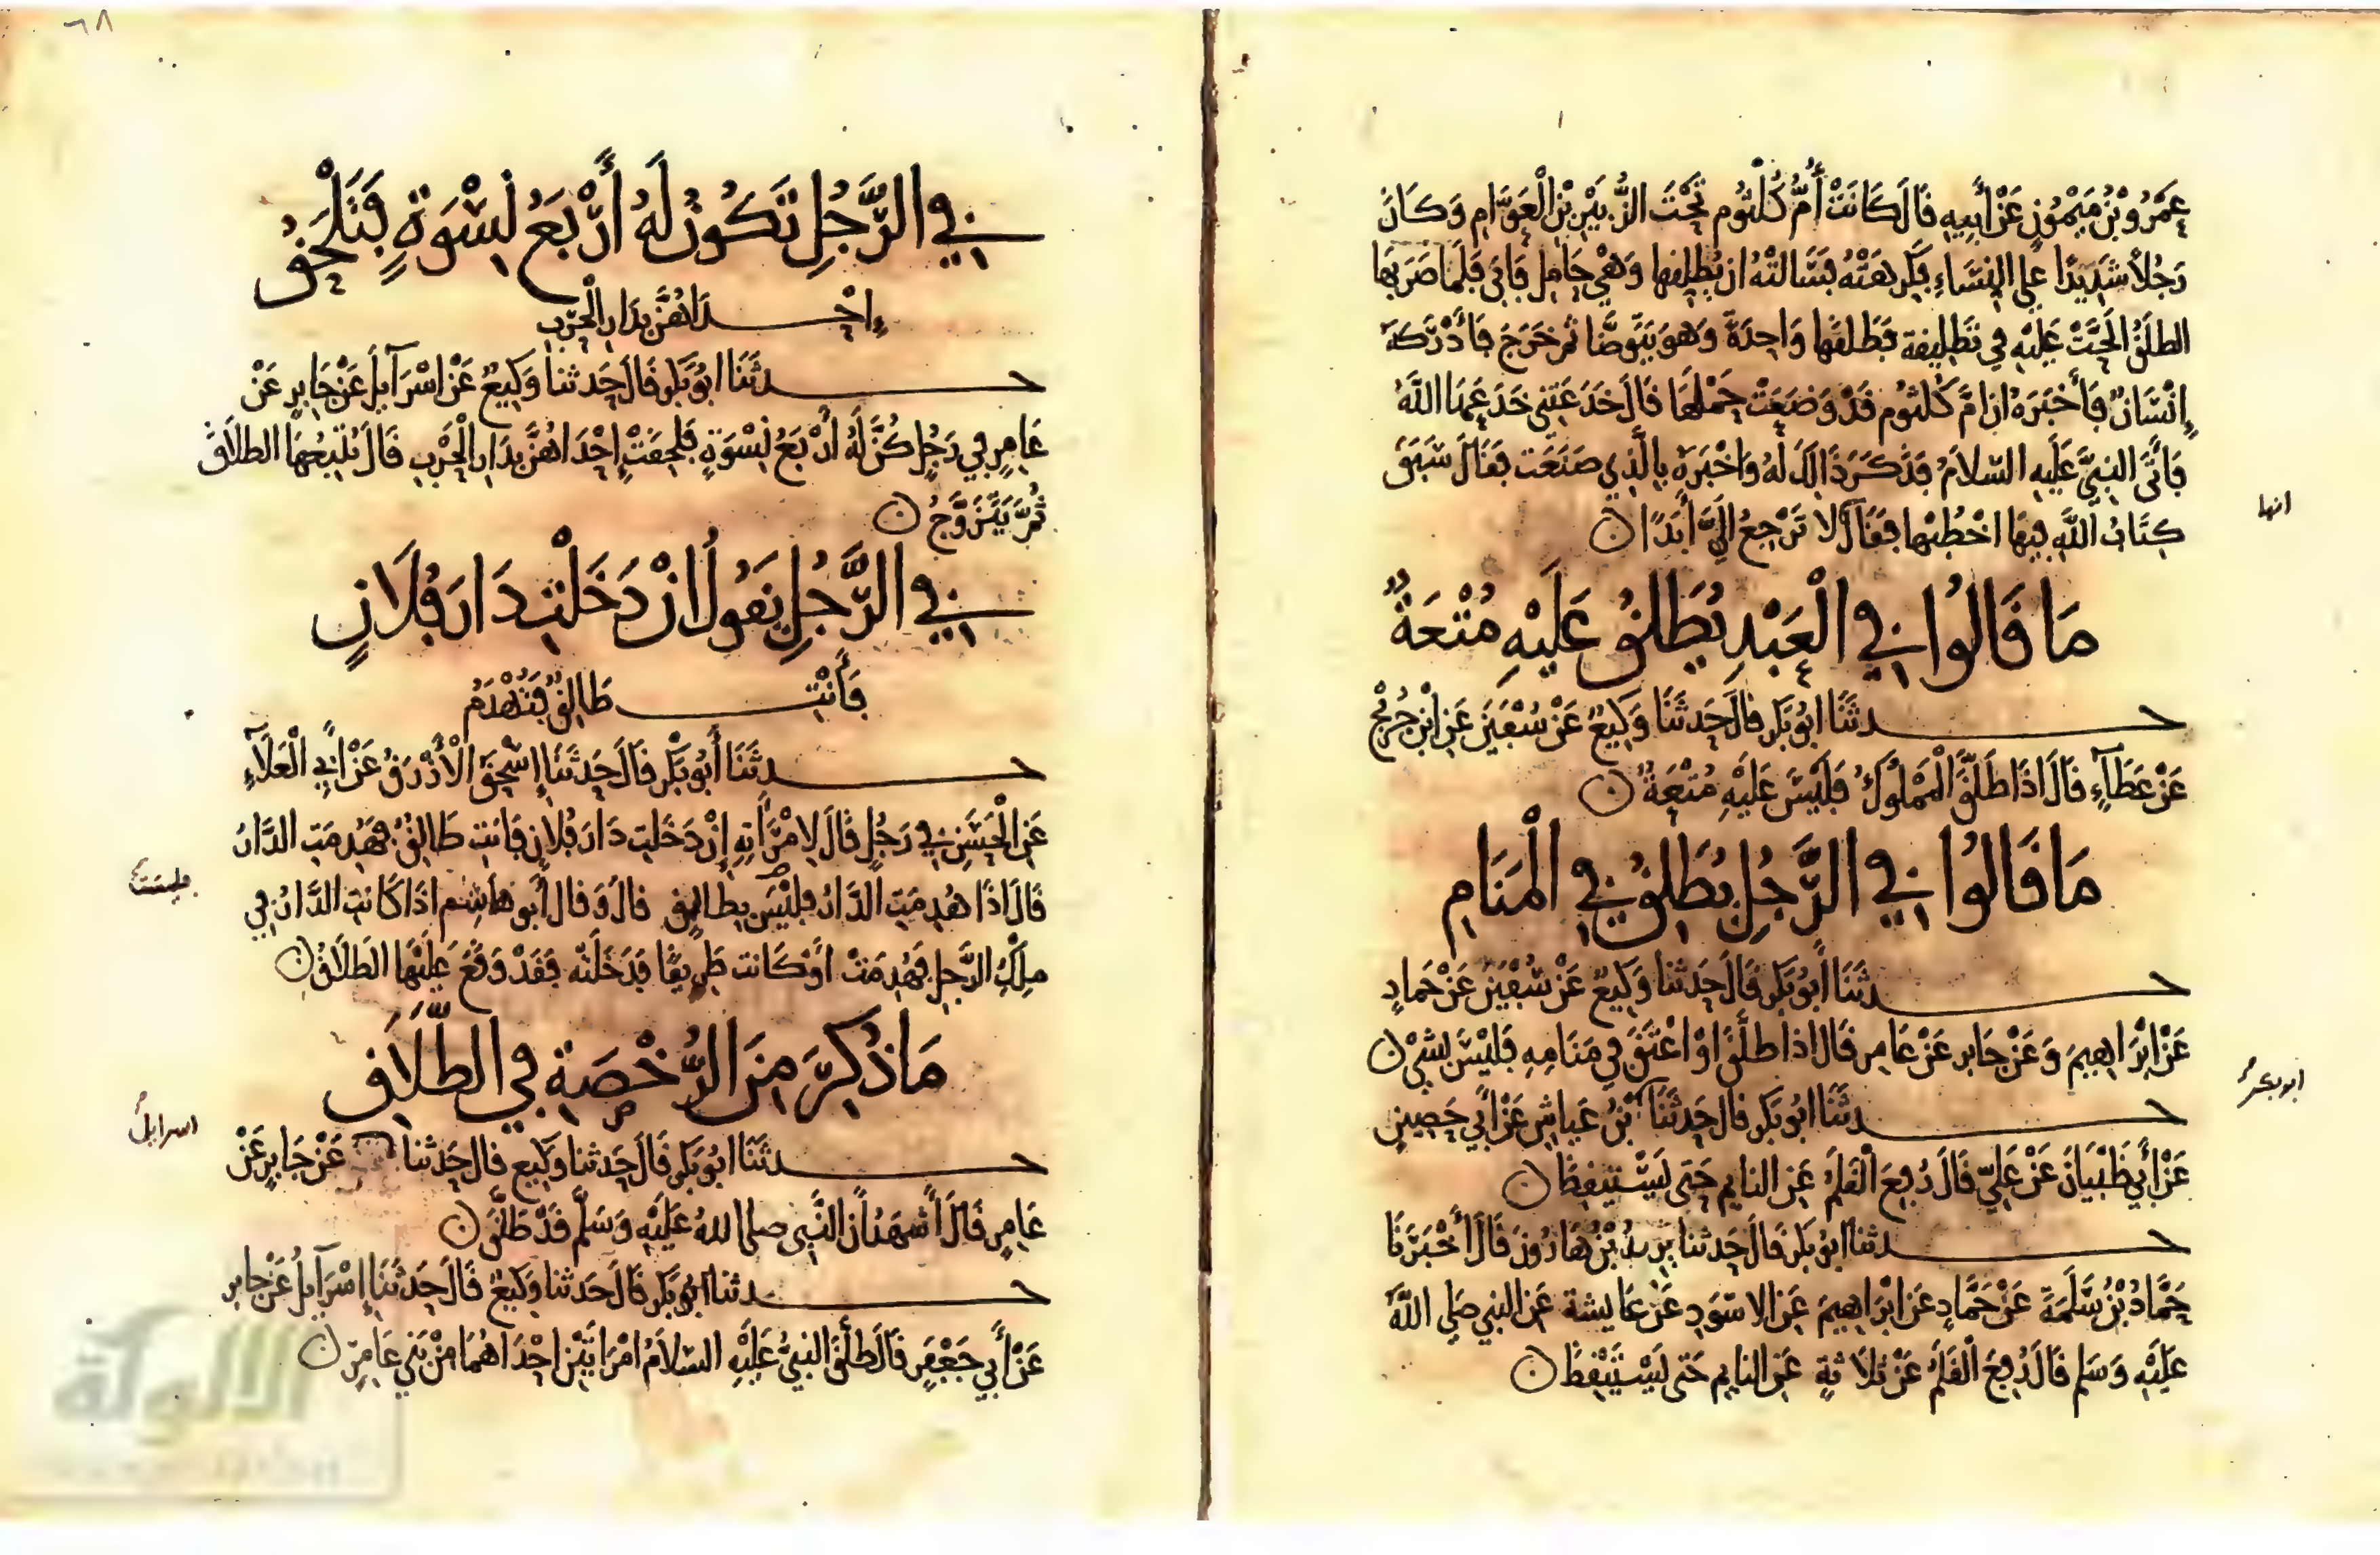 عمرو بن ميمون عن أبيه قال كانت أم كلثوم تحت الزبير بن العوام وكان
رجلا شديدا على النساء فكرهته فسالته ان يطلقها وهي حامل فابى فلما ضربها
الطلق الحت عليه في تطليقة فطلقها واحدة وهو يتوضا ثم خرج فأدركه
إنسان فأخبره ان ام كلثوم قد وضعت حملها قال خدعتني خدعها الله
فاتى النبي عليه السلام فذكر ذالك له واخبره بالذي صنعت فقال سبق
كتاب الله فيها اخطبها فقال لا ترجع الي أبدا
انها
ما قالوا في العبد يطلق عليه متعة
حدثنا ابو بكر قال حدثنا وكيع عن سفين عن ابن جريج
عن عطاء قال اذا طلق المملوك فليس عليه متعة
ما قالوا في الرجل يطلق في المنام
حدثنا أبو بكر قال حدثنا وكيع عن سفين عن حماد
عن ابراهيم وعن جابر عن عامر قال اذا طلق او اعتق في منامه فليس بشي
حدثنا ابو بكر قال حدثنا بن عياش عن أبي حصين
ابو بكر
عن أبي ظبيان عن علي قال رفع القلم عن النايم حتى يستيقظ
حدثنا ابو بكر قال حدثنا يزيد بن هارون قال أخبرنا
حماد بن سلمة عن حماد عن ابراهيم عن الاسود عن عايشة عن النبي صلى الله
عليه وسلم قال رفع القلم عن ثلاثة عن النايم حتى يستيقظ
٦٨
في الرجل تكون له أربع نسوة فتلحق
إحداهن بدار الحرب
حدثنا ابو بكر قال حدثنا وكيع عن اسرآيل عن جابر عن
عامر في رجل كن له أربع نسوة فلحقت إحداهن بدار الحرب قال يتبعها الطلاق
ثم يتزوج
في الرجل يقول ان دخلت دار فلان
فأنت طالق فتهدم
حدثنا أبو بكر قال حدثنا إسحق الأزرق عن أبي العلاء
عن الحسن في رجل قال لامرأته إن دخلت دار فلان فانت طالق فهدمت الدار
قال اذا هدمت الدار فليس بطالق قال وقال أبو هاشم اذا كانت الدار في
فليست
ملك الرجل فهدمت أو كانت طريقا فدخلته فقد وقع عليها الطلاق
ما ذكر من الرخصة في الطلاق
حدثنا ابو بكر قال حدثنا وكيع قال حدثنا عن جابر عن
اسرايل
عامر قال أشهد أن النبي صلى الله عليه وسلم قد طلق
حدثنا ابو بكر قال حدثنا وكيع قال حدثنا إسرآيل عن جابر
عن أبي جعفر قال طلق النبي عليه السلام امرأتين احداهما من بني عامر
الالوكة